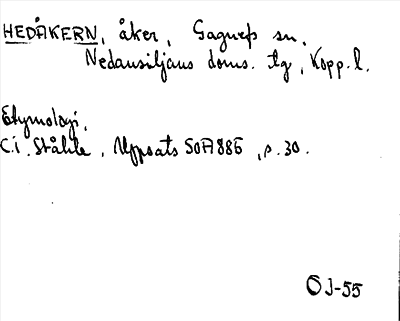 HEDÅKERN, åker, Gagnefs sn.
Nedansiljans doms. tg, Kopp. l.
Etymologi.
C.I. Ståhle, Uppsats SOA 886, s. 30.
ÖJ-55